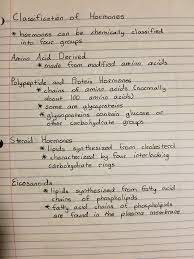 Classification of Hormones
* hormones can be chemically classified
into four groups
Amino Acid Derived
* made from modified amino acids
Polypeptide and Protein Hormones
* chains of amino acids (normally
about 100 amino acids)
* some are glycoproteins
* glycoproteins contain glucose or
other carbohydrate groups
Steroid Hormones
* lipids synthesized from cholesterol
* characterized by four interlocking
carbohydrate rings
Eicosanoids
* lipids synthesized from fatty acid
chains of phospholipids
* fatty acid chains of phospholipids
are found in the plasma membrane